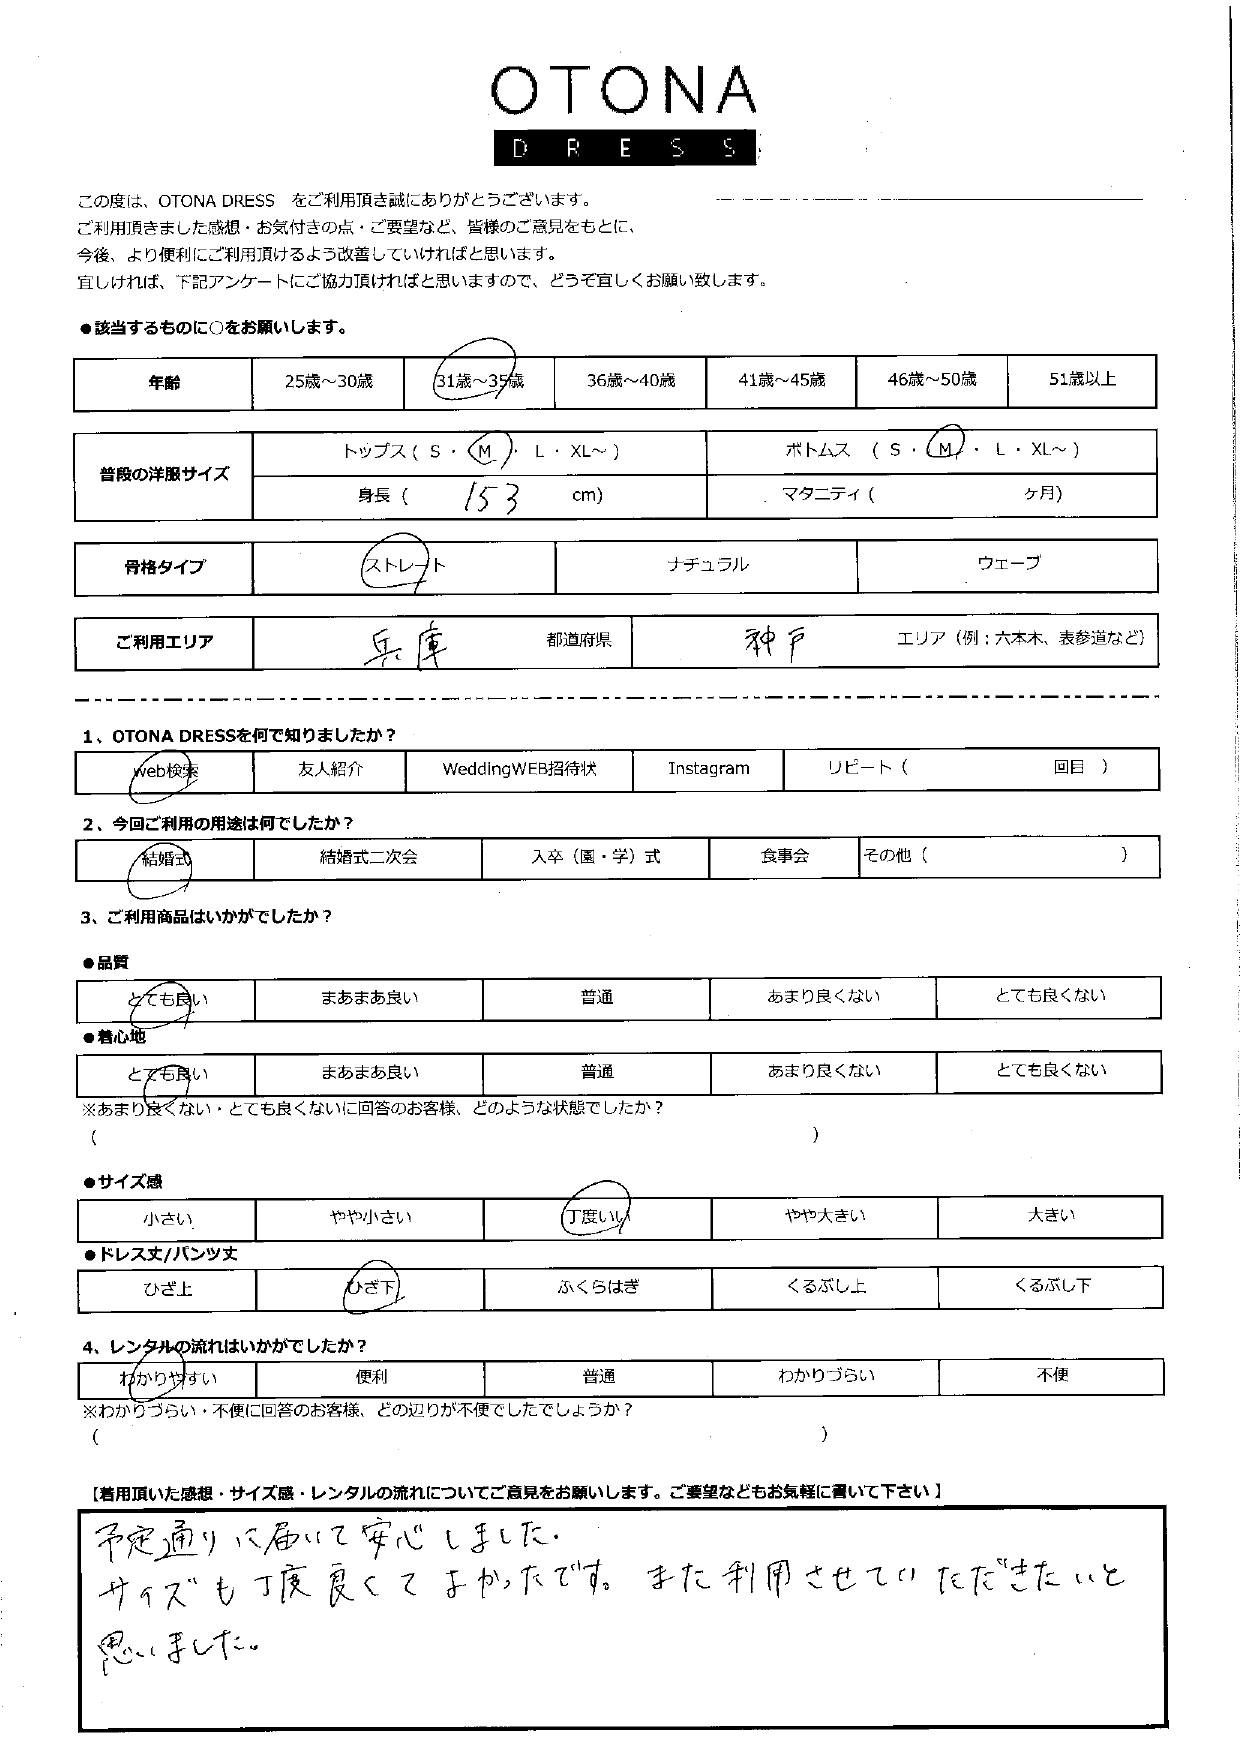 OTONA
DRESS
この度は、OTONA DRESS　をご利用頂き誠にありがとうございます。
ご利用頂きました感想・お気付きの点・ご要望など、皆様のご意見をもとに、
今後、より便利にご利用頂けるよう改善していければと思います。
宜しければ、下記アンケートにご協力頂ければと思いますので、どうぞ宜しくお願い致します。
●該当するものに○をお願いします。
年齢 25歳～30歳 31歳～35歳 36歳～40歳 41歳～45歳 46歳～50歳 51歳以上
普段の洋服サイズ トップス ( S ・ M ・ L ・ XL～ ) ボトムス ( S ・ M ・ L ・ XL～ )
身長 ( 153 cm) マタニティ ( ケ月)
骨格タイプ ストレート ナチュラル ウェーブ
ご利用エリア 兵庫 都道府県 神戸 エリア（例：六本木、表参道など）
1、OTONA DRESSを何で知りましたか？
web検索 友人紹介 WeddingWEB招待状 Instagram リピート（ 回目 ）
2、今回ご利用の用途は何でしたか？
結婚式 結婚式二次会 入卒（園・学）式 食事会 その他（ ）
3、ご利用商品はいかがでしたか？
●品質
とても良い まあまあ良い 普通 あまり良くない とても良くない
●着心地
とても良い まあまあ良い 普通 あまり良くない とても良くない
※あまり良くない・とても良くないに回答のお客様、どのような状態でしたか？
( )
●サイズ感
小さい やや小さい 丁度いい やや大きい 大きい
●ドレス丈/パンツ丈
ひざ上 ひざ下 ふくらはぎ くるぶし上 くるぶし下
4、レンタルの流れはいかがでしたか？
わかりやすい 便利 普通 わかりづらい 不便
※わかりづらい・不便に回答のお客様、どの辺りが不便でしたでしょうか？
( )
【着用頂いた感想・サイズ感・レンタルの流れについてご意見をお願いします。ご要望などもお気軽に書いて下さい】
予定通りに届いて安心しました.
サイズも丁度良くてよかったです。また利用させていただきたいと
思いました。